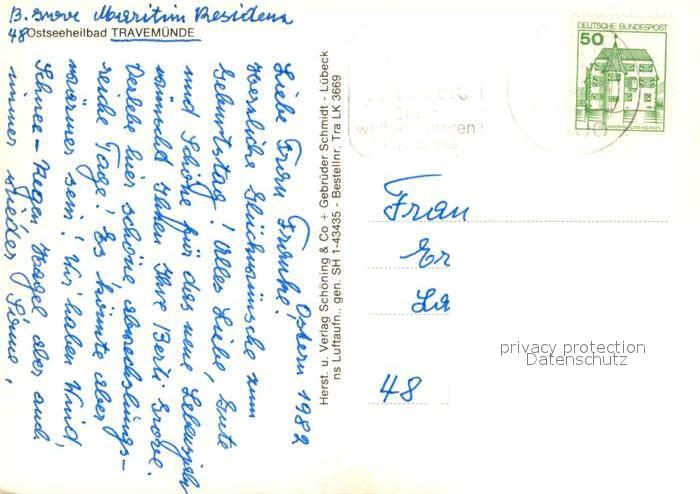 B. Grove Maritim Residenz
48
Ostseeheilbad TRAVEMÜNDE
Ostern 1982
Liebe Frau Franke!
Herzliche Glückwünsche zum
Geburtstag! Alles Liebe, Gute
und Schöne für das neue Lebensjahr
wünscht Ihnen Ihre Berti Grove.
Verlebe hier schöne abwechslungs-
reiche Tage! Es könnte aber
wärmer sein! Wir haben Wind,
Schnee - Regen Hagel, aber auch
immer wieder Sonne.
Herst. u. Verlag Schöning & Co + Gebrüder Schmidt - Lübeck
ns Luftaufn., gen. SH 1-43435 - Bestellnr. Tra LK 3669
DEUTSCHE BUNDESPOST
50
Frau
Er
La
48
privacy protection
Datenschutz